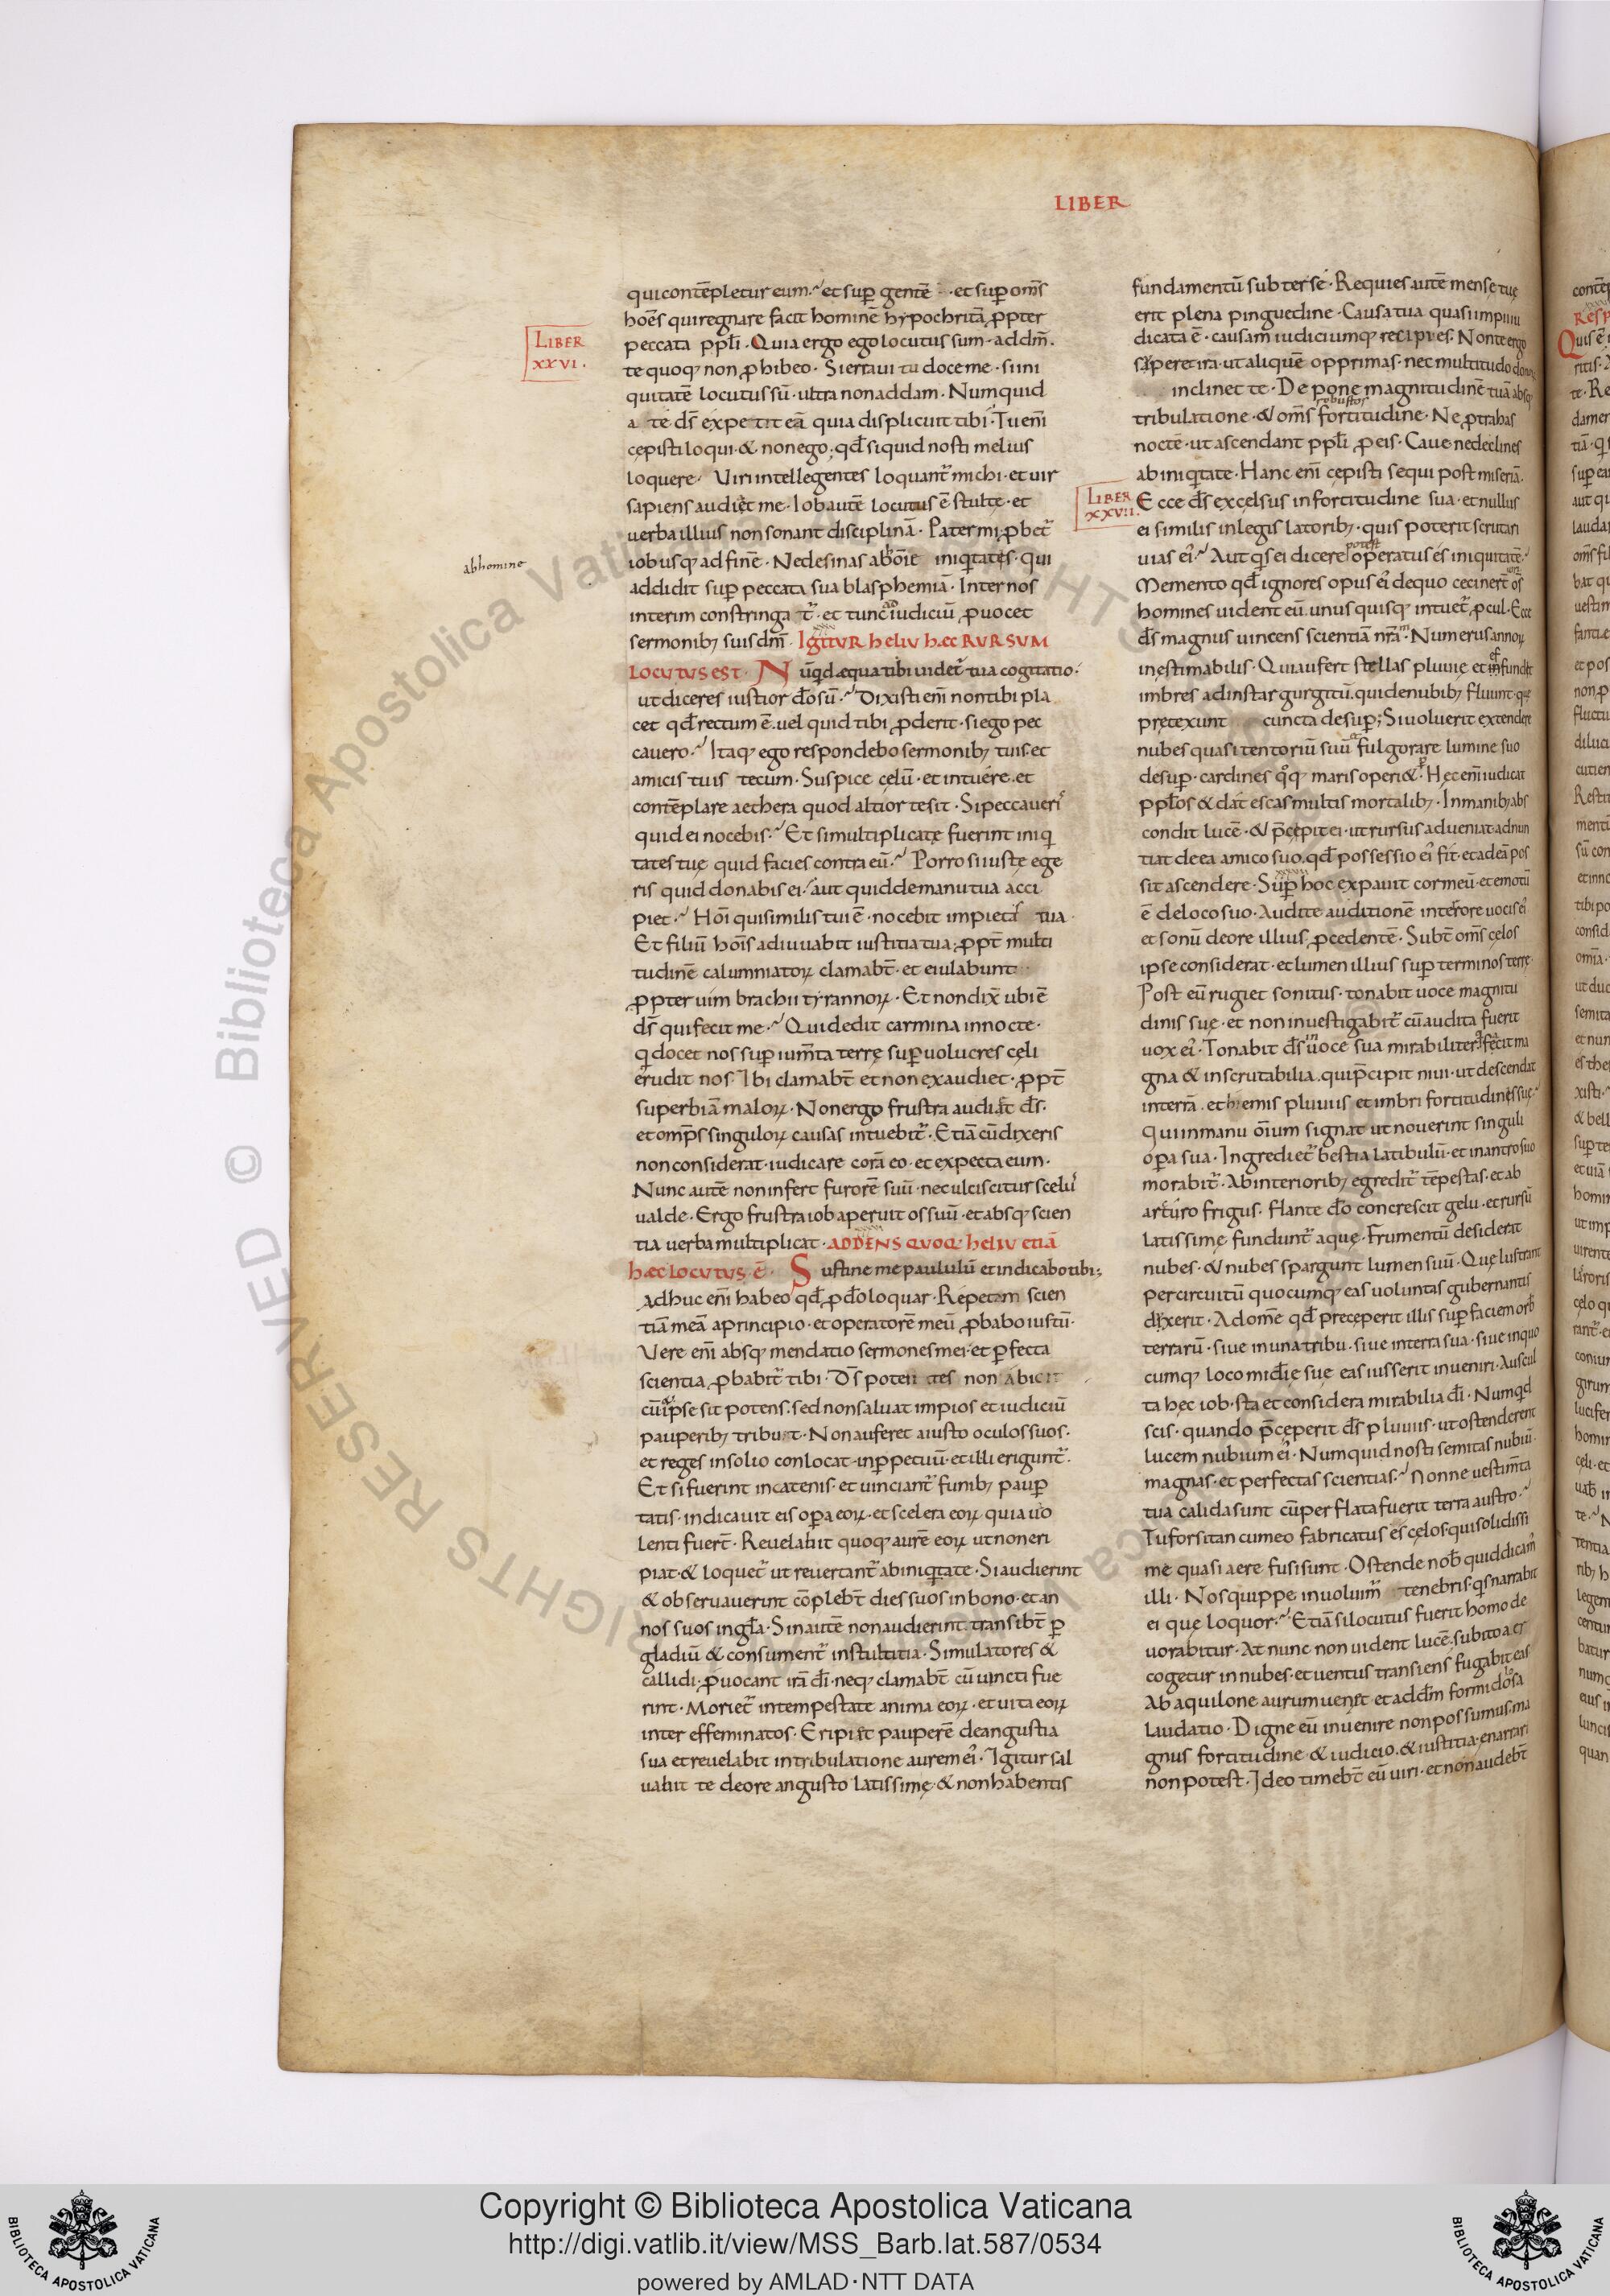 LIBER
qui contēpletur eum· et sup gentē · et sup om̄s
hoēs qui regnare facit hominē hypochritā ꝓpter
LIBER
XXVI·
peccata ppl̄i· Quia ergo ego locutus sum· ad dm̄·
te quoq; non ꝓhibeo· Si erravi tu doce me· si ini
quitatē locutus sū· ultra non addam· Numquid
a te ds̄ expetit eā quia displicuit tibi· Tu eni
cepisti loqui· & non ego· qd̄ si quid nosti melius
loquere· Viri intellegentes loquant̄ michi· et vir
sapiens audiet me· Iob autē locutus ē stulte· et
verba illius non sonant disciplinā· Pater mi ꝓbet̄
abhomine
iob usq; ad finē· Ne desinas ab hoīe iniqͥtates· qui
addidit sup peccata sua blasphemiā· Inter nos
interim constringat̄· et tunc ad iudiciū ꝓvocet
sermonib; suis dm̄· IgITUR heliu hæc RURSUM
LOCUTUS EST· Nūqͥd æqua tibi videt̄ tua cogitatio·
ut diceres iustior dō sū· Dixisti eni non tibi pla
cet qd̄ rectum ē· vel quid tibi ꝓderit· si ego pec
cavero· Itaq; ego respondebo sermonib; tuis et
amicis tuis tecum· Suspice cęlū· et intuere· et
contēplare aethera quod altior te sit· Si peccaveri᷒
quid ei nocebis· Et si multiplicatę fuerint iniqͥ
tates tuę quid facies contra eū· Porro si iuste ege
ris quid donabis ei· aut quid de manu tua acci
piet· Hoi qui similis tui ē· nocebit impietas tua·
Et filiū hoīs adiuvabit iustitia tua· ꝓpt̄ multi
tudinē calumniatoꝝ clamabt̄· et eiulabunt
ꝓpter vim brachii tyrannoꝝ· Et non dix̄ ubi ē
ds̄ qui fecit me· Qui dedit carmina in nocte·
qͥ docet nos sup ium̄ta terrę sup volucres cęli
erudit nos· Ibi clamabt̄ et non exaudiet· ꝓpt̄
superbiā maloꝝ· Non ergo frustra audiet ds̄·
et omps singuloꝝ causas intuebit̄· Etiā cū dixeris
non considerat· iudicare corā eo· et expecta eum·
Nunc autē non infert furorē suū· nec ulciscitur scelu᷒
valde· Ergo frustra iob aperuit os suū· et absq; scien
tia verba multiplicat· ADDENS QUOQ; heliu etiā
hæc LOCUTUS ē· Sustine me paululū et indicabo tibi·
Adhuc eni habeo qd̄ ꝓ dō loquar· Repetam scien
tiā meā a principio· et operatorē meū ꝓbabo iustū·
Vere eni absq; mendatio sermones mei· et pfecta
scientia ꝓbabit̄ tibi· Ds̄ potentes non abicit
cū & ipse sit potens· sed non salvat impios et iudiciū
pauperib; tribuit· Non auferet a iusto oculos suos·
et reges in solio conlocat· in ppetuū· et illi erigunt̄·
Et si fuerint in catenis· et vinciant̄ funib; paup
tatis· indicavit eis opa eoꝝ· et scelera eoꝝ quia vio
lenti fuert̄· Revelabit quoq; aurē eoꝝ ut non eri
piat· & loquet̄ ut revertant̄ ab iniqͥtate· Si audierint
& observaverint cōplebt̄ dies suos in bono· et an
nos suos in gl̄a· Sin autē non audierint transibt̄ p
gladiū & consument̄ in stultitia· Simulatores &
callidi ꝓvocant irā dī· neq; clamabt̄ cū vincti fue
rint· Moriet̄ in tempestate anima eoꝝ· et vita eoꝝ
inter effeminatos· Eripiet pauperē de angustia
sua et revelabit in tribulatione aurem ei᷒· Igitur sal
vabit te de ore angusto latissime· & non habentis
fundamentū subter se· Requies autē mensę tuę
erit plena pinguedine· Causa tua quasi impii iu
dicata ē· causam iudiciumq; recipies· Non te ergo
superet ira· ut aliquē opprimas· nec multitudo donoꝝ
inclinet te· Depone magnitudinē tuā absq;
tribulatione· & om̄s robustos fortitudine· Ne ꝓtrahas
noctē· ut ascendant ppl̄i ꝓ eis· Cave ne declines
ab iniqͥtate· Hanc eni cępisti sequi post miseriā·
LIBER
XXVII·
Ecce ds̄ excelsus in fortitudine sua· et nullus
ei similis in legislatorib;· quis poterit scrutari
vias ei᷒· Aut qͥs ei dicere potest operatus es iniquitatē·
Memento qd̄ ignores opus ei᷒ de quo cecinert̄ ōs
homines vident eū· unusquisq; intuet̄ ꝓcul· Ecce
ds̄ magnus vincens scientiā nr̄ā· Numerus annoꝝ
inestimabilis· Qui aufert stellas pluvię et effundit
imbres ad instar gurgitū· qui de nubib; fluunt· que
pretexunt cuncta desup; Si voluerit extendere
nubes quasi tentoriū suū & fulgorare lumine suo
desup· cardines qͦq; maris operi&· Hęc eni iudicat
ppl̄os & dat escas multis mortalib;· In manib; abs
condit lucē· & p̄cepit ei· ut rursus adveniat adnun
tiat de ea amico suo· qd̄ possessio ei᷒ sit· et ad eā pos
sit ascendere· Sup hoc expavit cor meū· et emotū
ē de loco suo· Audite auditionē in terrore vocis ei᷒
et sonū de ore illius ꝓcedentē· Subt̄ om̄s cęlos
ipse considerat· et lumen illius sup terminos terrę·
Post eū rugiet sonitus· tonabit voce magnitu
dinis suę· et non investigabit̄ cū audita fuerit
vox ei᷒· Tonabit ds̄ in voce sua mirabiliter qͥ fecit ma
gna & inscrutabilia· qui p̄cipit nivi· ut descendat
in terrā· et hiemis pluviis et imbri fortitudinis suę·
Qui in manu ōium signat ut noverint singuli
opa sua· Ingrediet̄ bestia latibulū· et in antro suo
morabit̄· Ab interiorib; egredit̄ tēpestas· et ab
arturo frigus· Flante dō concrescit gelu· et rursū
latissimę fundunt̄ aquę· Frumentū desiderat
nubes· & nubes spargunt lumen suū· Quę lustrant
per circuitū quocumq; eas voluntas gubernantis
duxerit· Ad omē qd̄ preceperit illis sup faciem orb̄
terrarū· sive in una tribu· sive in terra sua· sive in quo
cumq; loco mīdię suę eas iusserit inveniri· Auscul
ta hęc iob· sta et considera mirabilia dī· Numqͥd
scis· quando p̄ceperit ds̄ pluviis· ut ostenderent
lucem nubium ei᷒· Numquid nosti semitas nubiū·
magnas· et perfectas scientias· Nonne vestim̄ta
tua calida sunt cū perflata fuerit terra austro·
Tu forsitan cum eo fabricatus es cęlos· qui solidissi
me quasi aere fusi sunt· Ostende nob̄ quid dicam᷒
illi· Nos quippe involuim᷒ tenebris· qͥs narrabit
ei quę loquor· Etiā si locutus fuerit homo de
vorabitur· At nunc non vident lucē· subito aer
cogetur in nubes· et ventus transiens fugabit eas
Ab aquilone aurum veniet et ad dm̄ formidolosa
laudatio· Digne eū invenire non possumus· ma
gnus fortitudine & iudicio· & iustitia· enarrari
non potest· Ideo timebt̄ eū viri· et non audebt̄
Copyright © Biblioteca Apostolica Vaticana
http://digi.vatlib.it/view/MSS_Barb.lat.587/0534
powered by AMLAD·NTT DATA